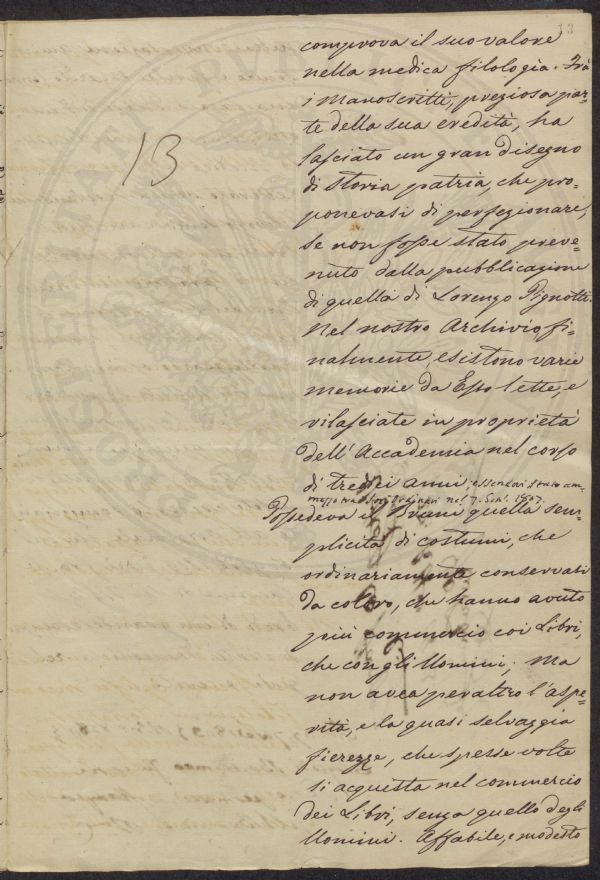 13
13
comprova il suo valore
nella medica filologia. Frà
i Manoscritti, preziosa par=
te della sua eredità, ha
lasciato un gran disegno
di storia patria, che pro=
ponevasi di perfezionare,
se non fosse stato preve=
nuto dalla pubblicazione
di quella di Lorenzo Pignotti.
Nel nostro Archivio fi=
nalmente, esistono varie
memorie da Esso lette, e
rilasciate in proprietà
dell'Accademia nel corso
di tredici anni, essendovi stato am=
messo tra i soci ordinari nel 7. 1807.
Possedeva il Bruni quella sem=
plicità di costumi, che
ordinariamente conservasi
da coloro, che hanno avuto
più commercio coi Libri,
che con gli Uomini; Ma
non avea peraltro l'aspe=
rità, e la quasi selvaggia
fierezze, che spesse volte
si acquista nel commercio
dei Libri, senza quello degli
Uomini. Affabile, e modesto